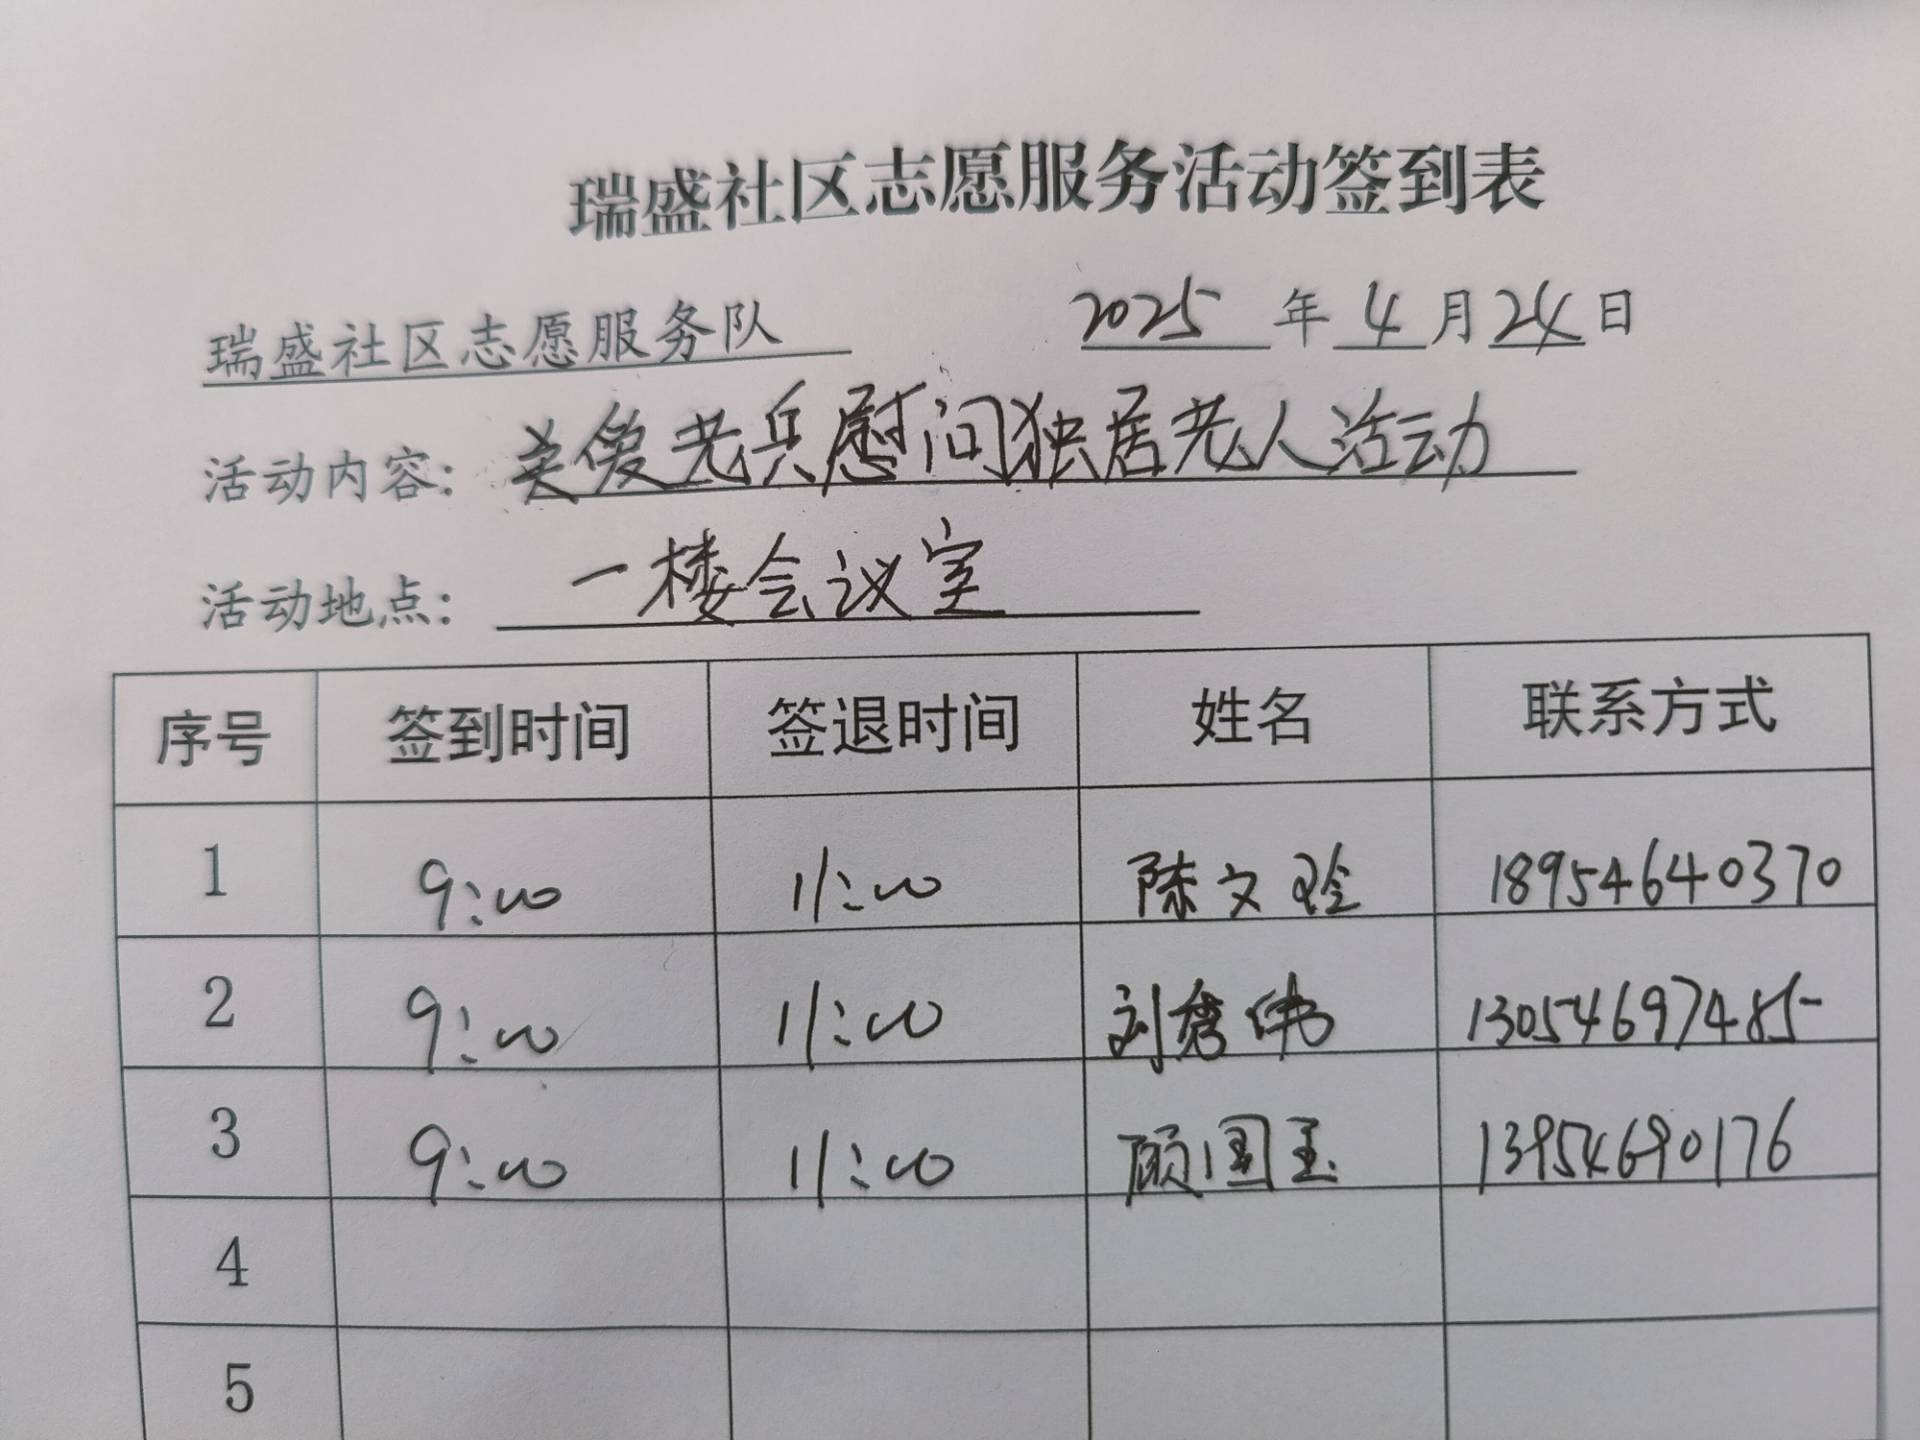 瑞盛社区志愿服务活动签到表
瑞盛社区志愿服务队 2025 年 4 月 24 日
活动内容：关爱老兵慰问独居老人活动
活动地点：一楼会议室
序号 签到时间 签退时间 姓名 联系方式
1 9:00 11:00 陈文玲 18954640370
2 9:00 11:00 刘秀伟 13054697485
3 9:00 11:00 顾国玉 13954690176
4
5